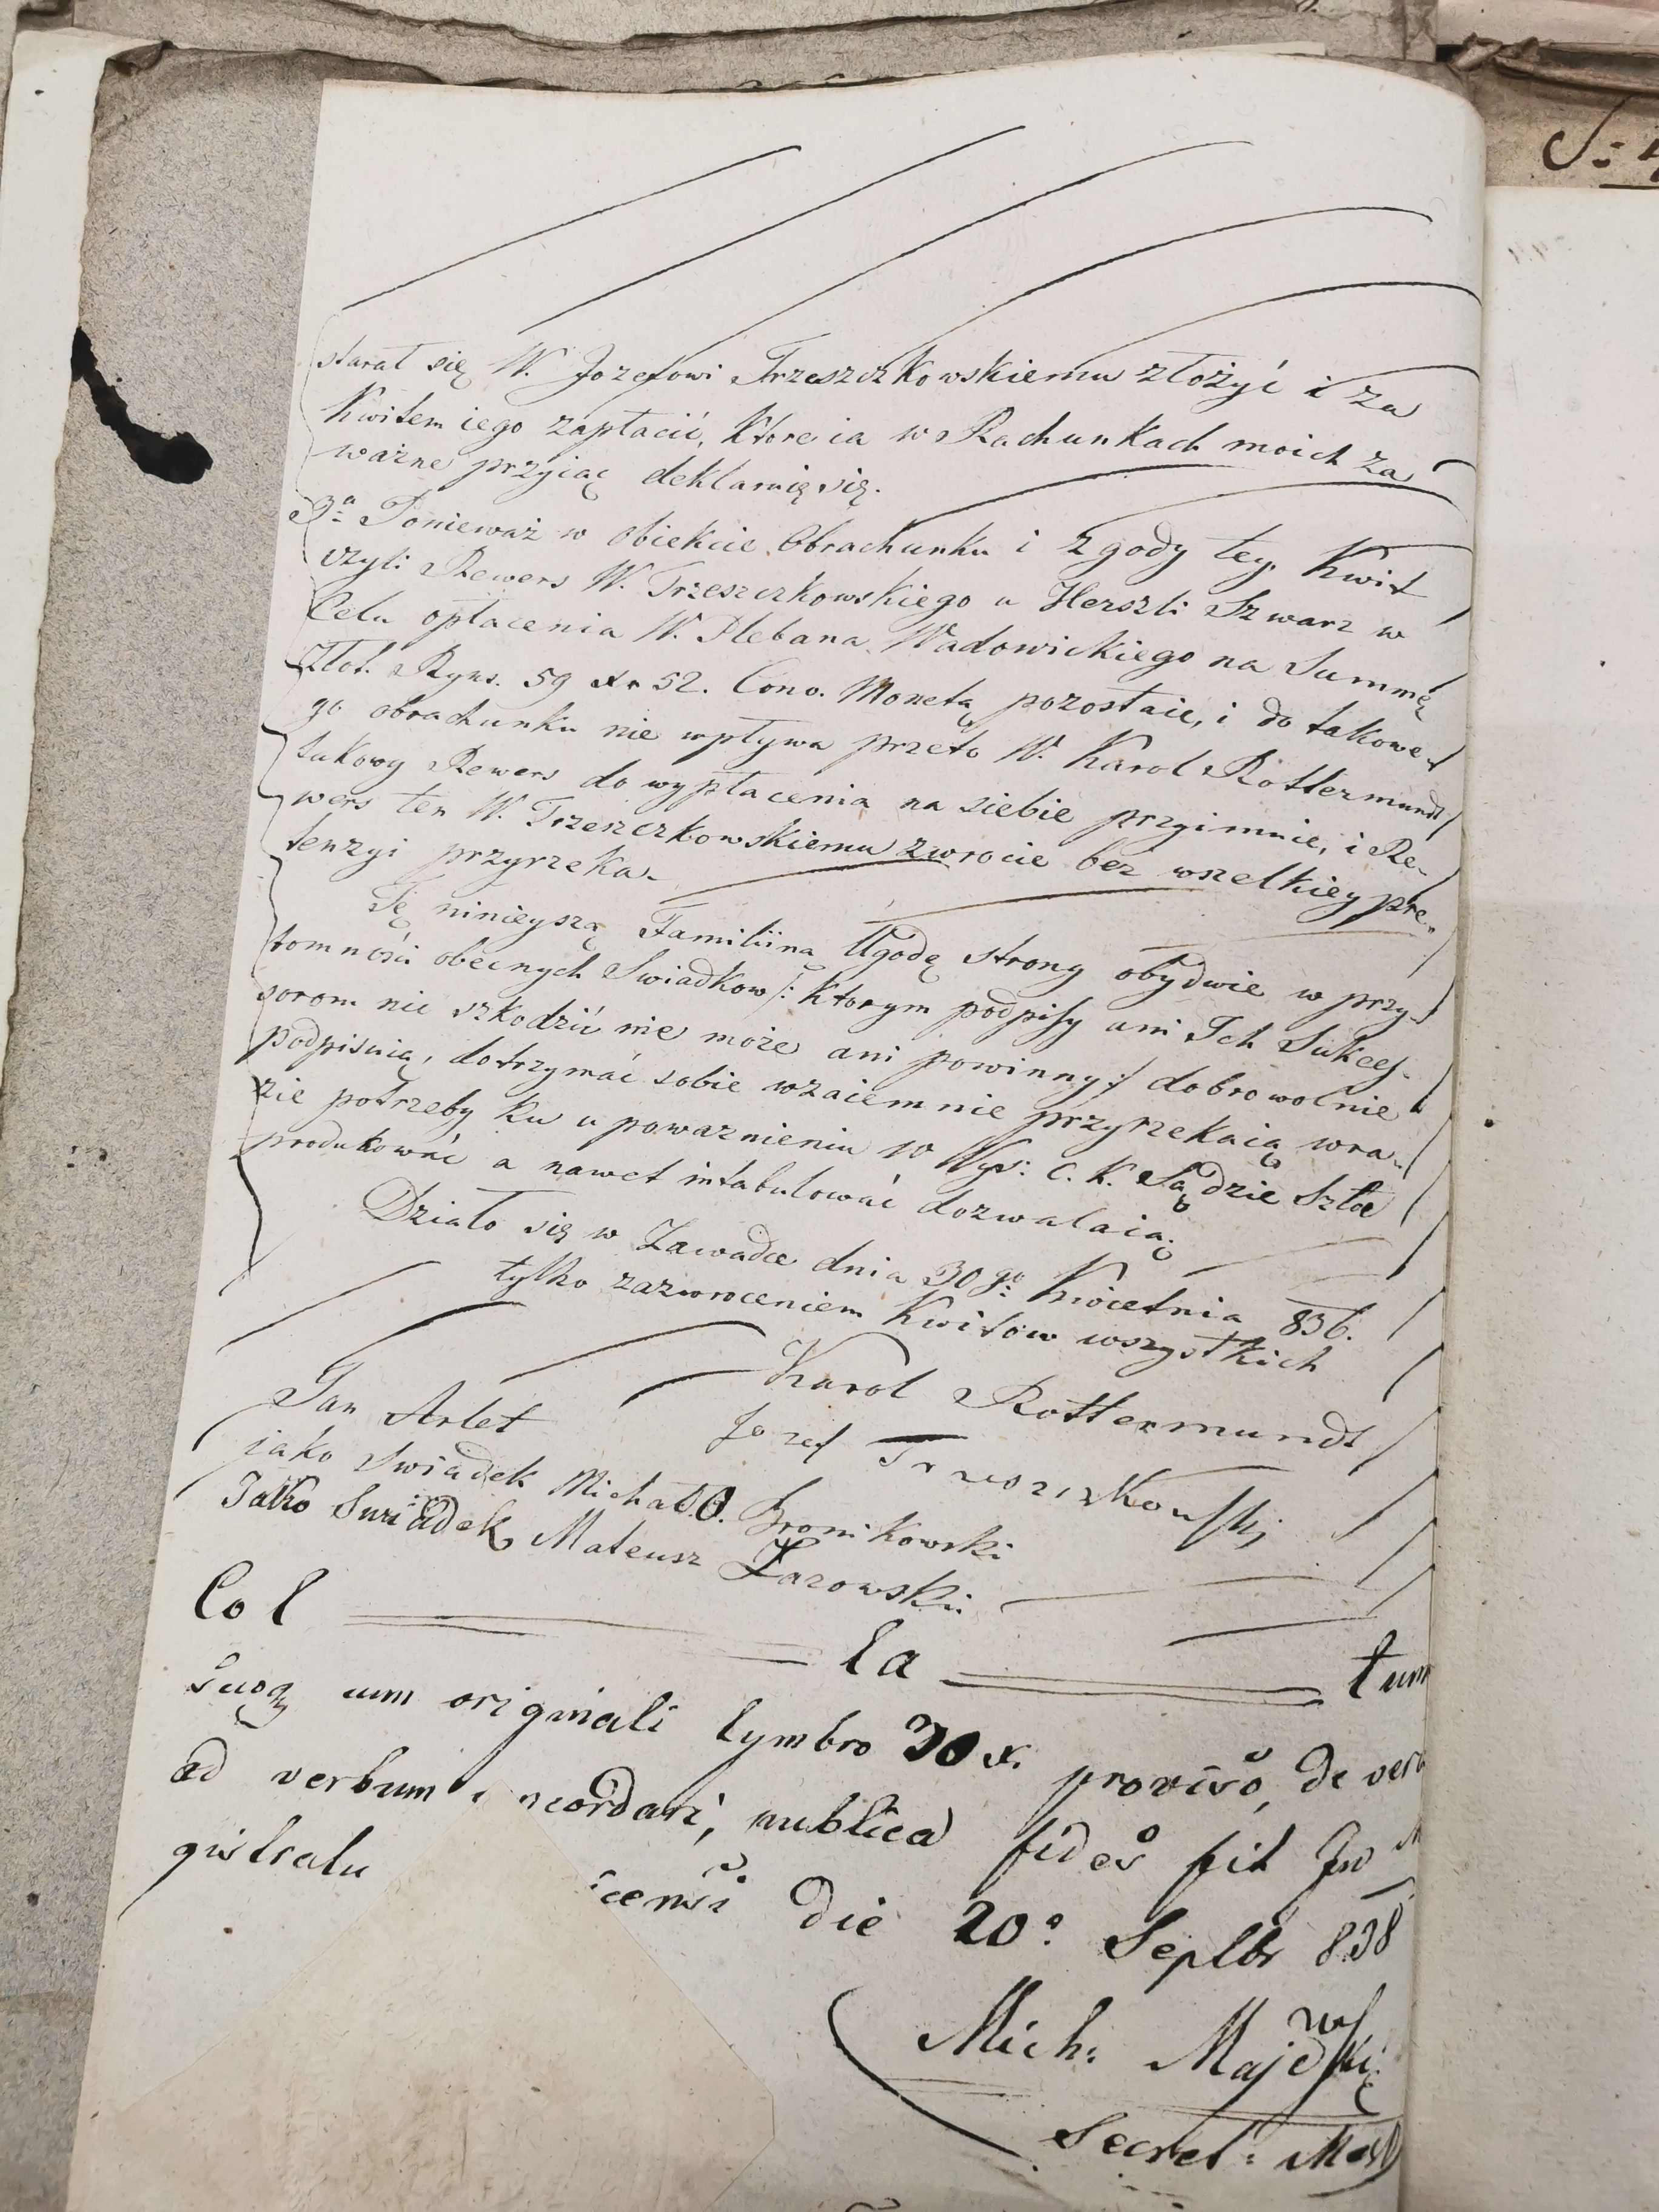 starał się W. Jozefowi Trzeszczkowskiemu złożyć i za
Kwitem iego zapłacić, które ia w Rachunkach moich za
ważne przyiąć deklaruię się.
3a: Ponieważ w obiekcie Obrachunku i Zgody tey Kwit
czyli Rewers W. Trzeszczkowskiego u Herszli Szwarz w
Celu opłacenia W. Plebana Wadowickiego na Summę
Złot. Ryns. 59 xr 52. Conv. Monetą pozostaie, i do takowe-
go obrachunku nie wpływa przeto W. Karol Rottermundt
takowy Rewers do wypłacenia na siebie przyimuie, i Re-
wers ten W. Trzeszczkowskiemu zwrocie bez wszelkiey pre-
tensyi przyrzeka.
Tę ninieyszą Familiiną Ugodę strony obydwie w przy-
tomności obecnych Swiadkow /: ktorym podpisy ani Ich Sukces-
sorom nic szkodzić nie może ani powinny :/ dobrowolnie
podpisuią, dotrzymać sobie wzaiemnie przyrzekaią w ra-
zie potrzeby ku upoważnieniu w Wys: C. K. Sądzie Szlae
produkować a nawet intabulować dozwalaią.
Działo się w Zawadce dnia 30go: Kwietnia 836.
tylko zazwroceniem Kwitow wszystkich
Karol Rottermundt
Jan Arlet Jozef Trzeszczkowski
jako swiadek Michał O. Bronikowski
Jako Swiadek Mateusz Łazowski
Col la tum
suoq um originali tymbro 30 x. proviso, de verb
ad verbum ncordari, publica fides fit In M
gistratu censi die 20a Septbr 838
Mich: Majewski
Secret:
S: